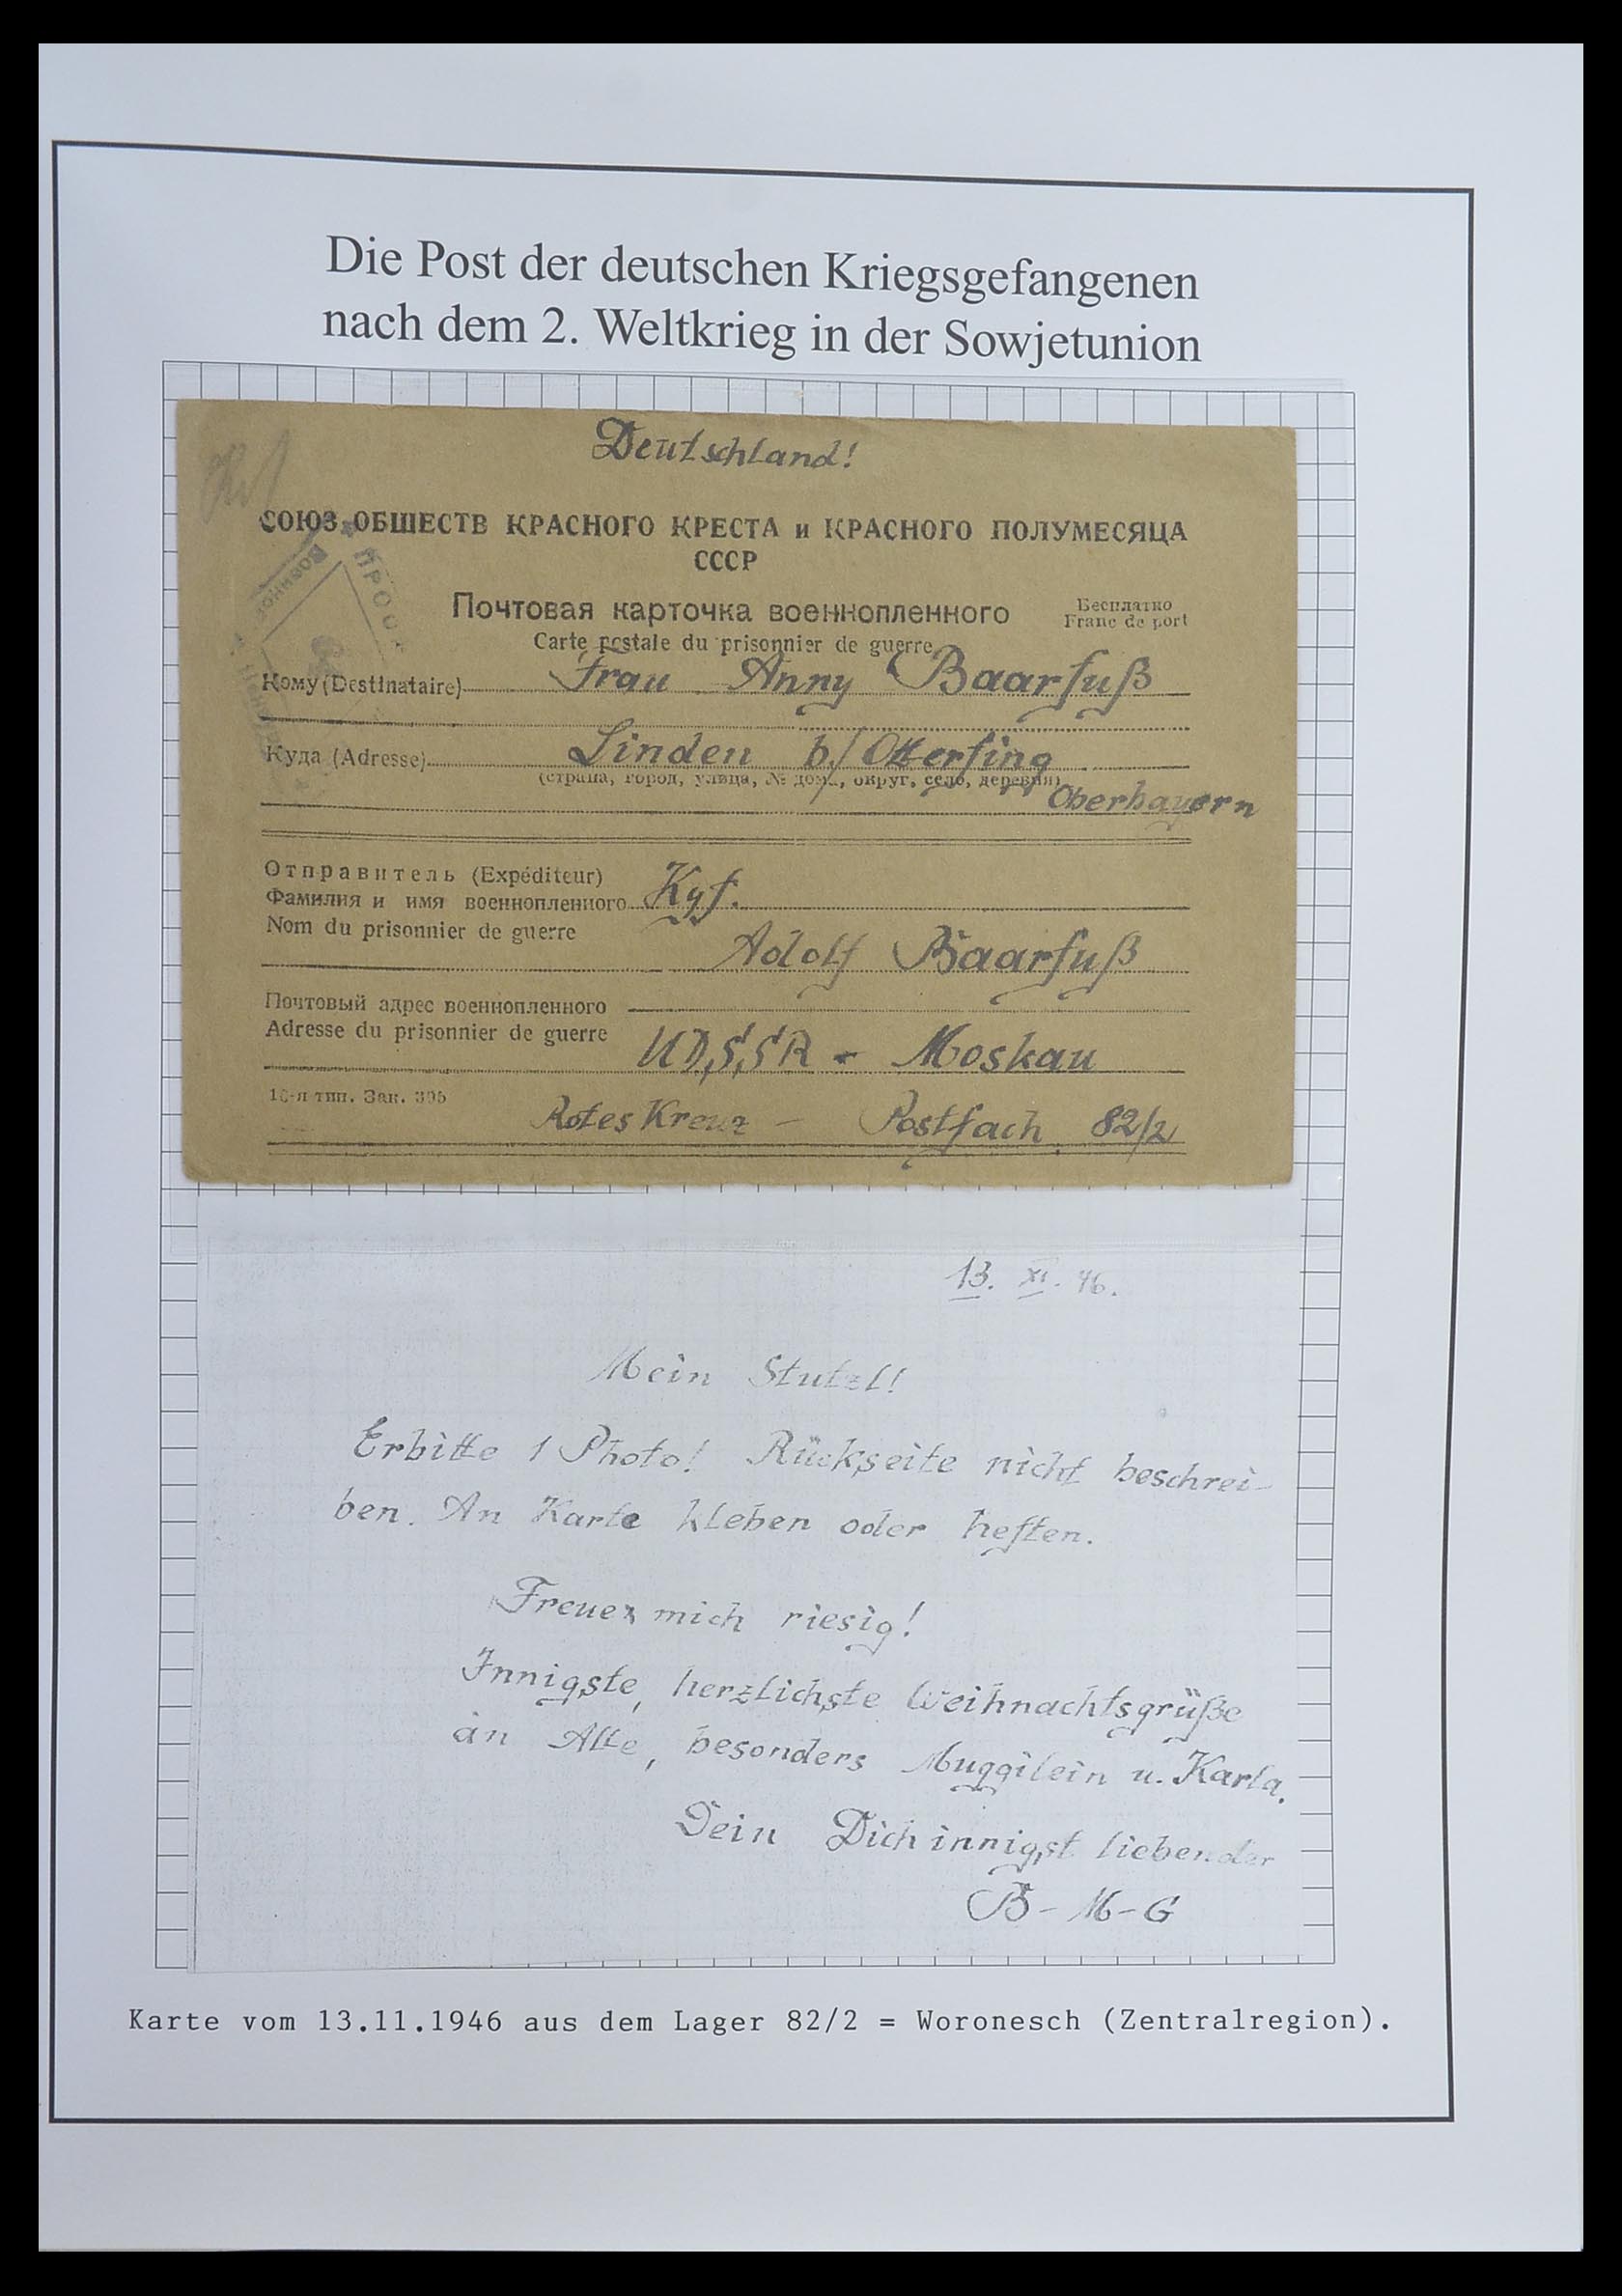 Die Post der deutschen Kriegsgefangenen
nach dem 2. Weltkrieg in der Sowjetunion
Deutschland!
СОЮЗ ОБЩЕСТВ КРАСНОГО КРЕСТА и КРАСНОГО ПОЛУМЕСЯЦА
СССР
Почтовая карточка военнопленного
Бесплатно
Franc de port
Carte postale du prisonnier de guerre
Кому (Destinataire) Frau Anny Baarfuß
Куда (Adresse) Linden b./ Otterfing
(страна, город, улица, № дома, округ, село, деревня)
Oberbayern
Отправитель (Expéditeur)
Фамилия и имя военнопленного Kgf.
Nom du prisonnier de guerre
Adolf Baarfuß
Почтовый адрес военнопленного
Adresse du prisonnier de guerre
UDSSR - Moskau
16-я тип. Зак. 395
Rotes Kreuz - Postfach 82/2
13. XI. 46.
Mein Stutzl!
Erbitte 1 Photo! Rückseite nicht beschrei-
ben. An Karte kleben oder heften.
Freue mich riesig!
Innigste, herzlichste Weihnachtsgrüße
an Alle, besonders Muggilein u. Karla.
Dein Dich innigst liebender
B-M-G
Karte vom 13.11.1946 aus dem Lager 82/2 = Woronesch (Zentralregion).